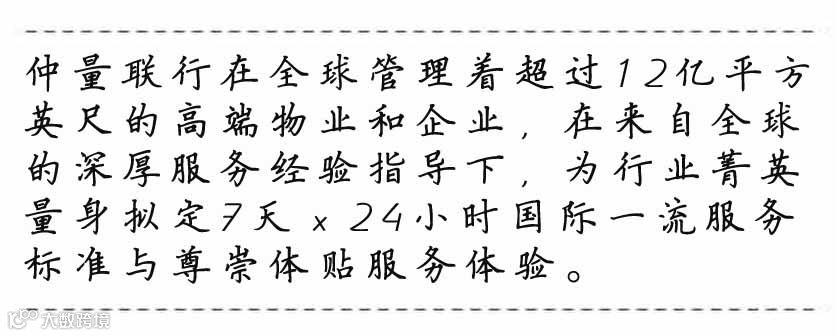 仲量联行在全球管理着超过12亿平方
英尺的高端物业和企业，在来自全球
的深厚服务经验指导下，为行业菁英
量身拟定7天 x 24小时国际一流服务
标准与尊崇体贴服务体验。
大数跨境